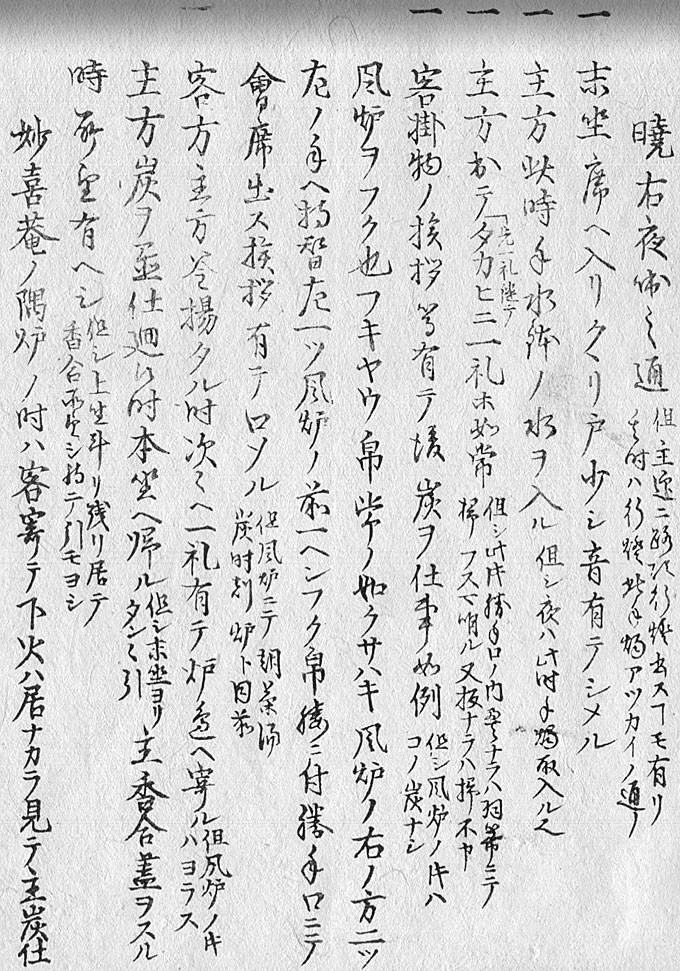 曉右夜咄之通 但主迎ニ路次行燈出スコモ有リ
其時ハ行燈此手燭アツカイノ通リ
一 末坐席ヘ入リクヽリ戸少シ音有テシメル
一 主方此時手水鉢ノ水ヲ入ル 但シ夜ハ此時手燭取入ル也
一 主方出テ「先一礼迄テ タカヒニ一礼ホ如常 但シ此時勝手口ノ内畳ナラハ羽箒ニテ
掃フスマ明ル又板ナラハ掃不申
一 客掛物ノ挨拶等有テ後炭ヲ仕事如例 但シ風炉ノ時ハ
コノ炭ナシ
風炉ヲフク也フキヤウ帛紗ノ如クサハキ風炉ノ右ノ方二ツ
左ノ手ヘ持替左一ツ風炉ノ前一ヘンフク帛腰ニ付勝手口ニテ
會席出ス挨拶有テロソル 但風炉ニテ朝茶湯
炭時刻炉ト同前
一 客方主方釜揚タル時次々ヘ一礼有テ炉邊ヘ寄ル 但風炉ノ時
ハヨラス
主方炭ヲ置仕廻候時本坐ヘ帰ル 但シ末坐ヨリ
タンタン引 主香合蓋ヲスル
時所望有ヘシ 但シ上坐斗リ残リ居テ
香合所望シ持テ引モヨシ
妙喜菴ノ隅炉ノ時ハ客寄テ下火ハ居ナカラ見テ主炭仕